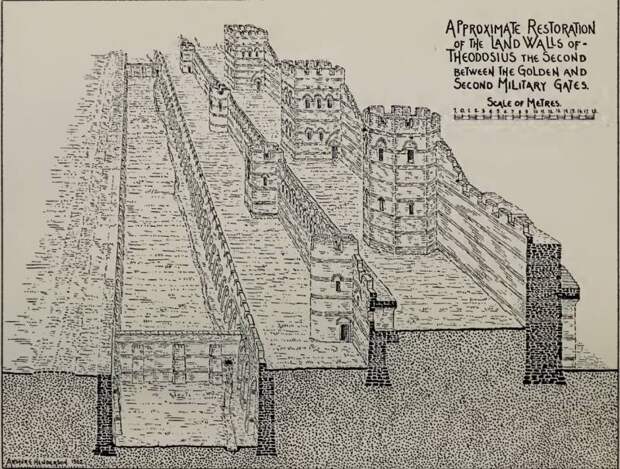 APPROXIMATE RESTORATION
OF THE LAND WALLS OF-
THEODOSIUS THE SECOND
BETWEEN THE GOLDEN AND
SECOND MILITARY GATES.
SCALE OF METRES.
ARTHUR E. HENDERSON